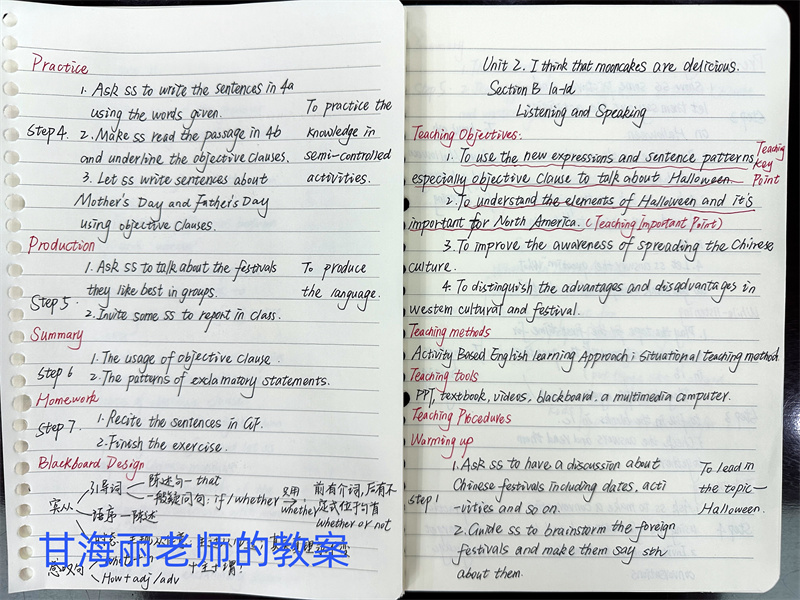 Practice
1. Ask ss to write the sentences in 4a
using the words given.
To practice the
Step 4.
2. Make ss read the passage in 4b
knowledge in
and underline the objective clauses.
semi-controlled
3. Let ss write sentences about
activities.
Mother's Day and Father's Day
using objective clauses.
Production
1. Ask ss to talk about the festivals
To produce
they like best in groups.
the language.
Step 5.
2. Invite some ss to report in class.
Summary
1. The usage of objective clause.
Step 6
2. The patterns of exclamatory statements.
Homework
1. Recite the sentences in GF.
Step 7.
2. Finish the exercise.
Blackboard Design
引导词
陈述句 - that
一般疑问句: if / whether
只用
whether
前有介词,后有不
定式位于句首
whether or not
宾从
语序 - 陈述
感叹句
How + adj / adv
甘海丽老师的教案
Unit 2. I think that mooncakes are delicious.
Section B 1a-1d.
Listening and Speaking
Teaching Objectives:
1. To use the new expressions and sentence patterns
Teaching
key
Point
especially objective clause to talk about Halloween
2. To understand the elements of Halloween and it's
important for North America. (Teaching Important Point)
3. To improve the awareness of spreading the Chinese
culture.
4. To distinguish the advantages and disadvantages in
western cultural and festival.
Teaching methods
Activity Based English learning Approach; Situational teaching method
Teaching tools
PPT, textbook, videos, blackboard. a multimedia computer.
Teaching Procedures
Warming up
1. Ask ss to have a discussion about
To lead in
Chinese festivals including dates, acti
the topic-
Step 1
-vities and so on.
Halloween.
2. Guide ss to brainstorm the foreign
festivals and make them say sth
about them.